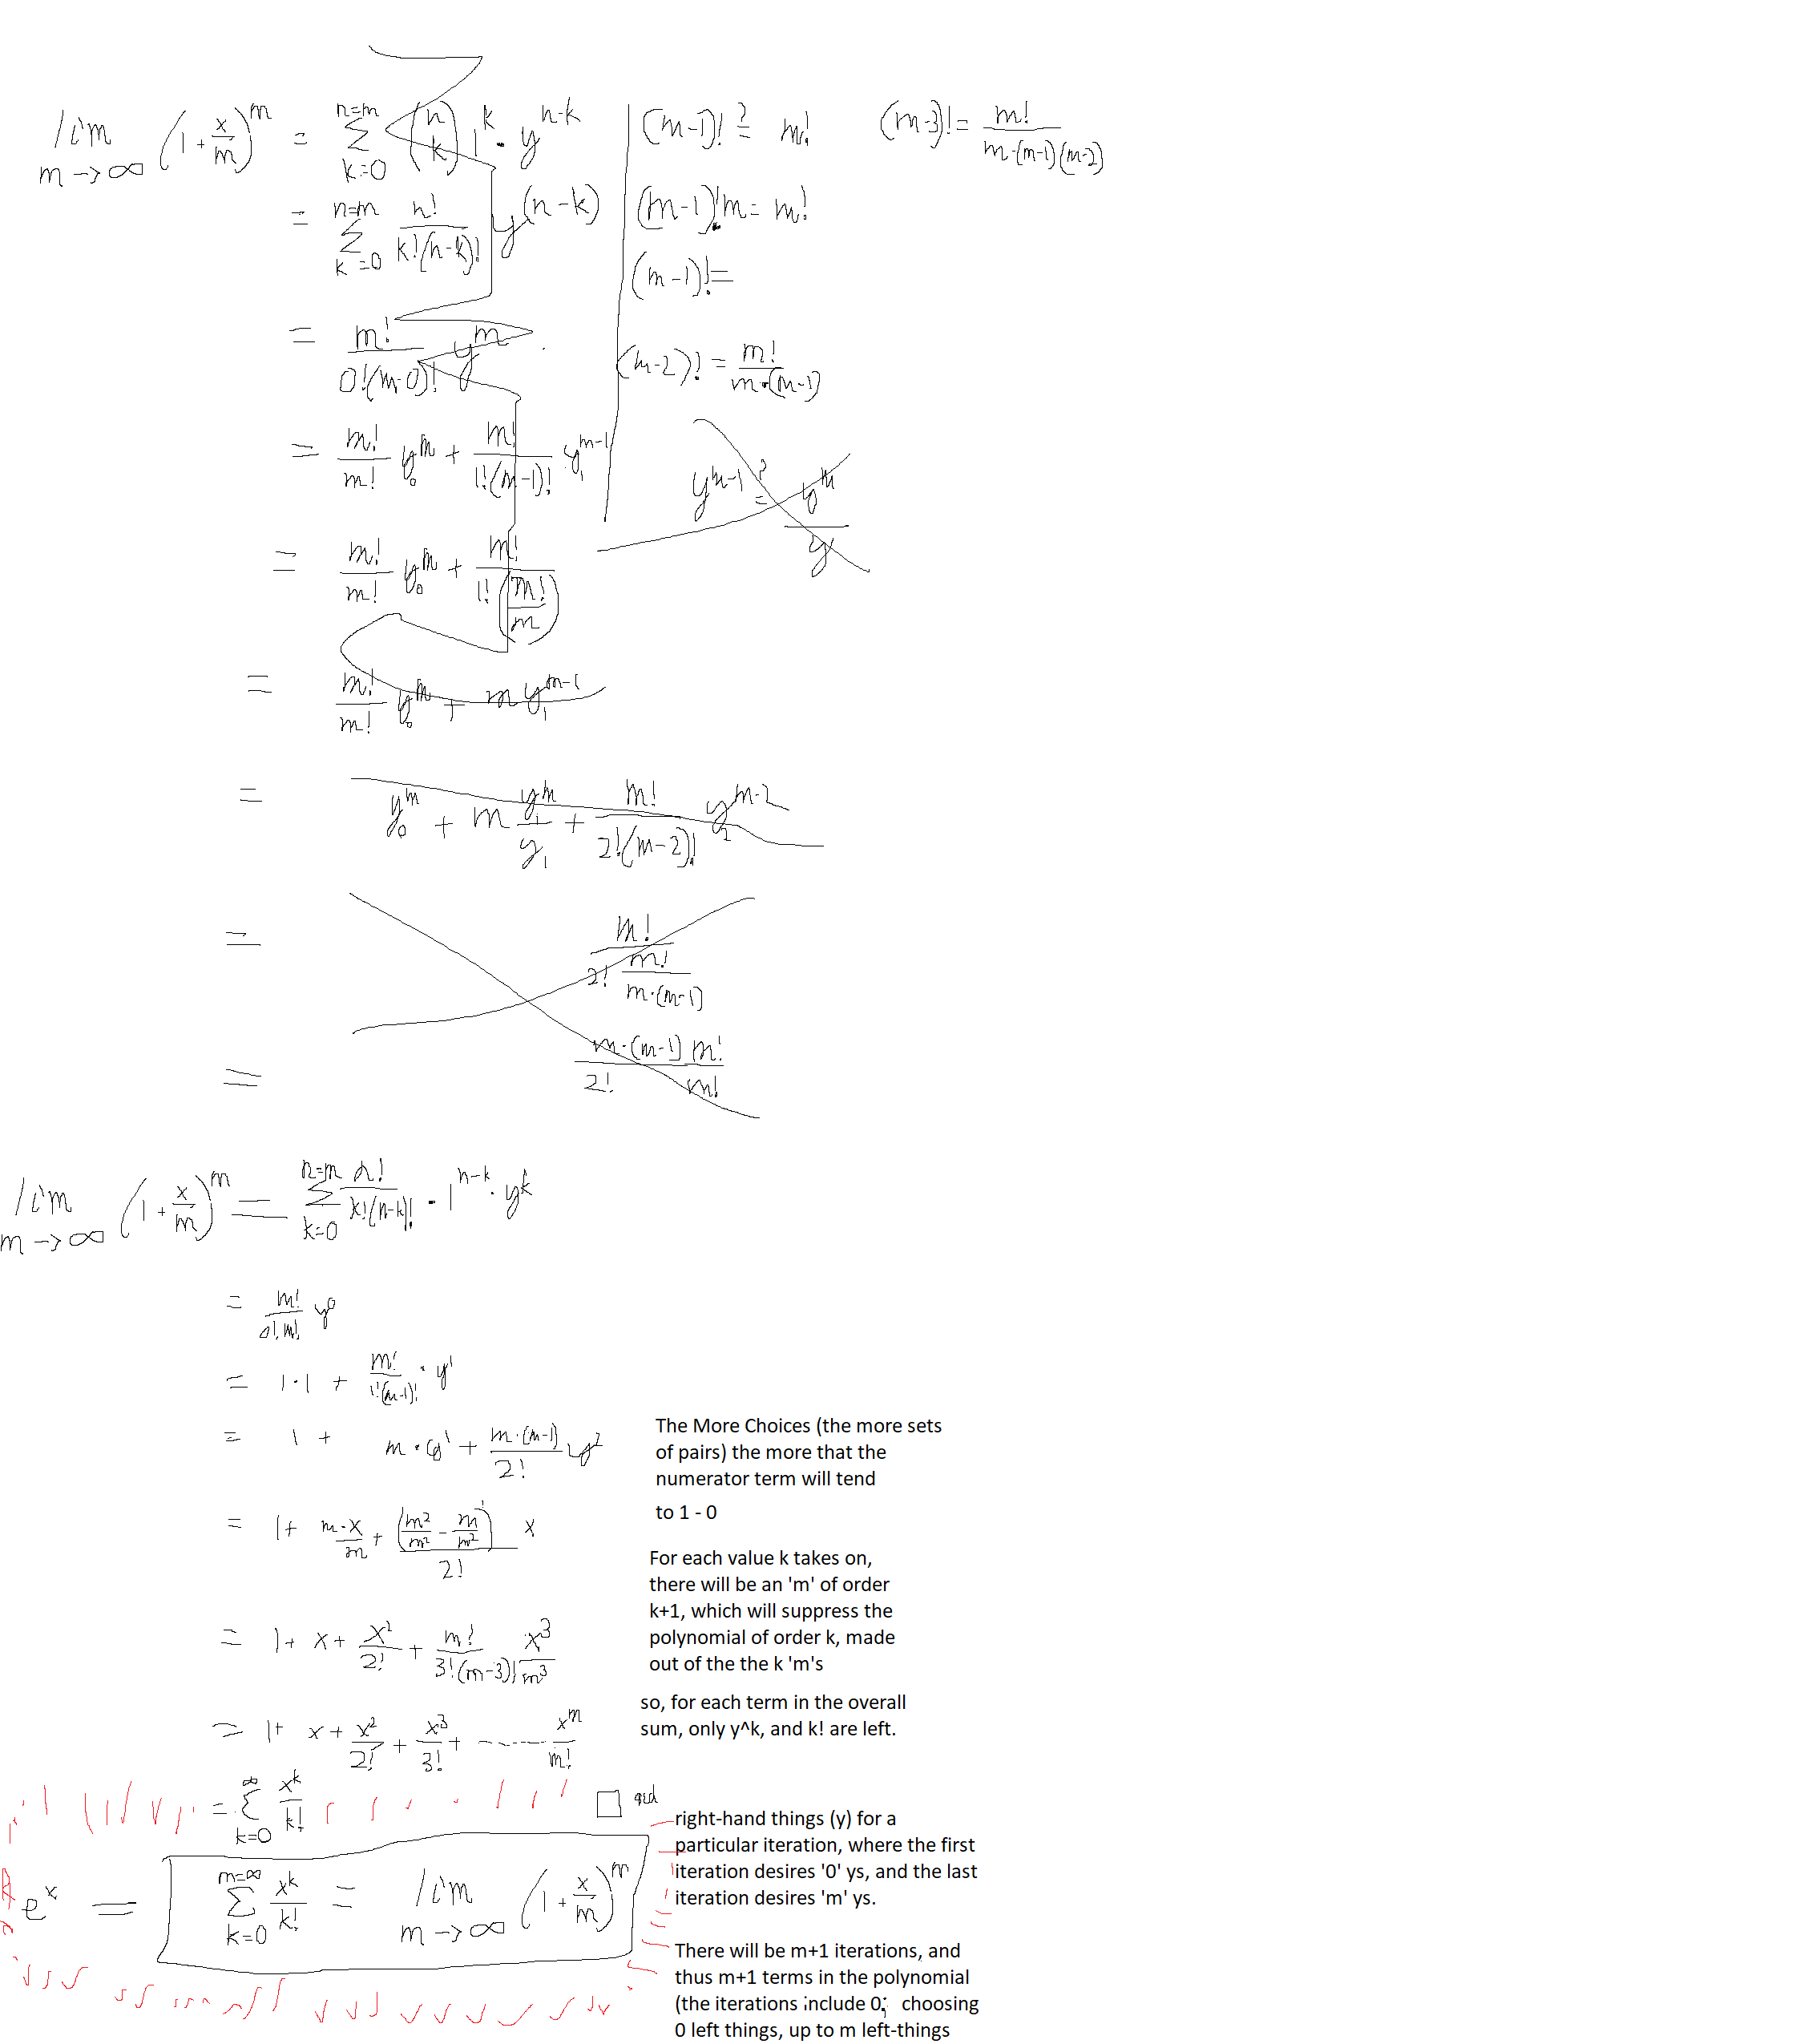 lim m→∞ (1 + x/m)^m = Σ_{k=0}^{n=m} (n k) 1^k · y^{n-k}
= Σ_{k=0}^{n=m} n!/(k!(n-k)!) y^{(n-k)}
= m!/(0!(m-0)!) y^m .
= m!/m! y_0^m + m!/(1!(m-1)!) y_1^{m-1}
= m!/m! y_0^m + m!/(1! (m!/m))
= m!/m! y_0^m + m y_1^{m-1}
= y_0^m + m y_1^m/y_1 + m!/(2!(m-2)!) y_2^{m-2}
= m!/(2! m!/(m·(m-1)))
= m·(m-1) m!/(2! m!)
(m-1)! ?= m!
(m-1)! · m = m!
(m-1)! =
(m-2)! = m!/(m·(m-1))
y^{m-1} ?= y^m/y
(m-3)! = m!/(m·(m-1)(m-2))
lim m→∞ (1 + x/m)^m = Σ_{k=0}^{n=m} n!/(k!(n-k)!) · 1^{n-k} · y^k
= m!/(0! m!) y^0
= 1·1 + m!/(1!(m-1)!) · y^1
= 1 + m·y^1 + m·(m-1)/2! y^2
= 1 + m·x/m + (m^2/m^2 - m/m^2)/2! x
= 1 + x + x^2/2! + m!/(3!(m-3)!) x^3/m^3
= 1 + x + x^2/2! + x^3/3! + ...... x^m/m!
= Σ_{k=0}^{∞} x^k/k! □ qed
e^x = Σ_{k=0}^{m=∞} x^k/k! = lim m→∞ (1 + x/m)^m
The More Choices (the more sets
of pairs) the more that the
numerator term will tend
to 1 - 0
For each value k takes on,
there will be an 'm' of order
k+1, which will suppress the
polynomial of order k, made
out of the the k 'm's
so, for each term in the overall
sum, only y^k, and k! are left.
right-hand things (y) for a
particular iteration, where the first
iteration desires '0' ys, and the last
iteration desires 'm' ys.
There will be m+1 iterations, and
thus m+1 terms in the polynomial
(the iterations include 0; choosing
0 left things, up to m left-things